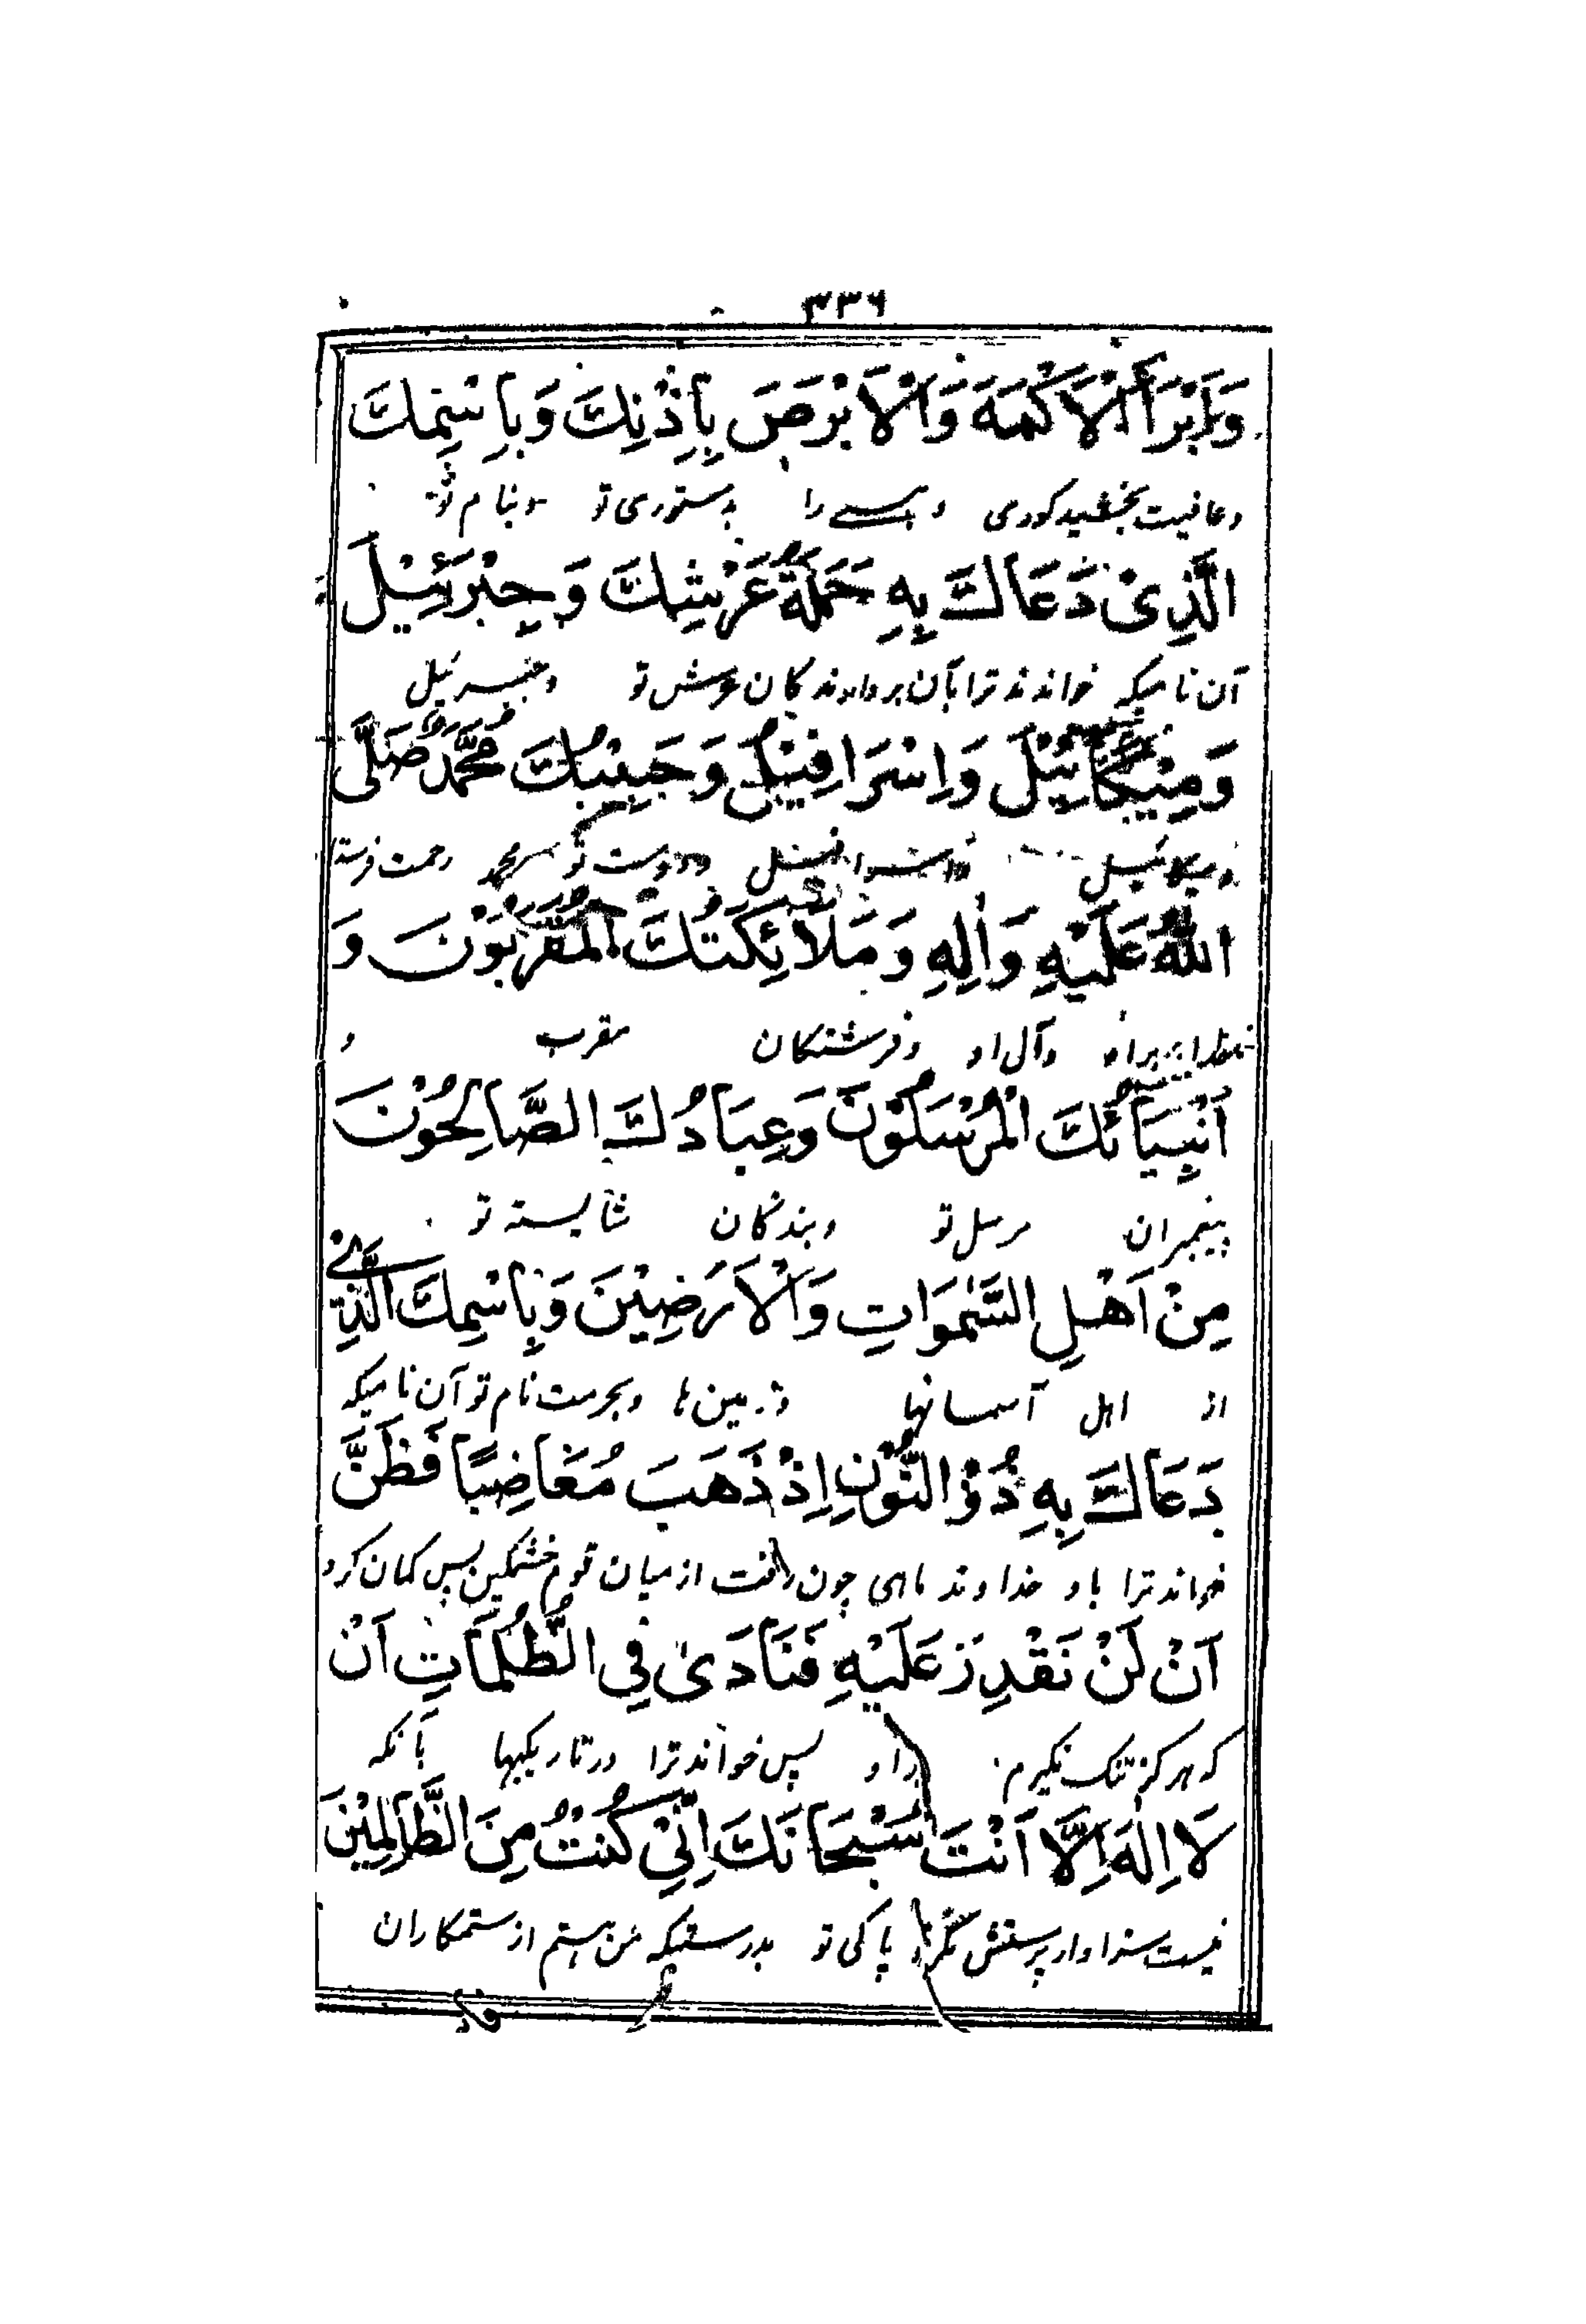 ٣٣٦
وَاَبْرَأَ الْاَكْمَهَ وَالْاَبْرَصَ بِاِذْنِكَ وَبِاسْمِكَ
وعافیت بخشید کوری و را بدستوری تو وبنام تو
الَّذِىْ دَعَاكَ بِهِ حَمَلَةُ عَرْشِكَ وَجِبْرَئِيْلَ
آن نامیکه خواندند ترا بآن بردارندکان عرش تو وجبرئیل
وَمِيْكَائِيْلَ وَاِسْرَافِيْلُ وَحَبِيْبُكَ مُحَمَّدٌ صَلَّى
ومیکائیل واسرافیل ودوست تو محمد رحمت فرستد
اللهُ عَلَيْهِ وَاٰلِهِ وَمَلَائِكَتُكَ الْمُقَرَّبُوْنَ وَ
خدا براو وآل او وفرشتکان مقرب و
اَنْبِيَائُكَ الْمُرْسَلُوْنَ وَعِبَادُكَ الصَّالِحُوْنَ
پیغمبران مرسل تو وبندکان شایسته تو
مِنْ اَهْلِ السَّمٰوَاتِ وَالْاَرَضِيْنَ وَبِاسْمِكَ الَّذِيْ
از اهل آسمانها وزمین ها وبحرمت نام تو آن نامیکه
دَعَاكَ بِهِ ذُوْ النُّوْنِ اِذْ ذَهَبَ مُغَاضِبًا فَظَنَّ
خواند ترا باو خداوند ماهی چون رفت از میان قوم خشمکین پس کمان کرد
اَنْ لَنْ نَقْدِرَ عَلَيْهِ فَنَادَىٰ فِي الظُّلُمَاتِ اَنْ
که هرکز تنک نکیرم براو پس خواند ترا در تاریکیها بآنکه
لَا اِلٰهَ اِلَّا اَنْتَ سُبْحَانَكَ اِنِّيْ كُنْتُ مِنَ الظَّالِمِيْنَ
نیست سزاوار پرستش مکر تو پاکی تو بدرستیکه من هستم از ستمکاران